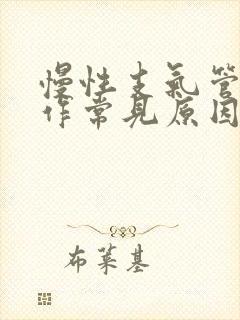 慢性支氣管
作常見原因
布萊基